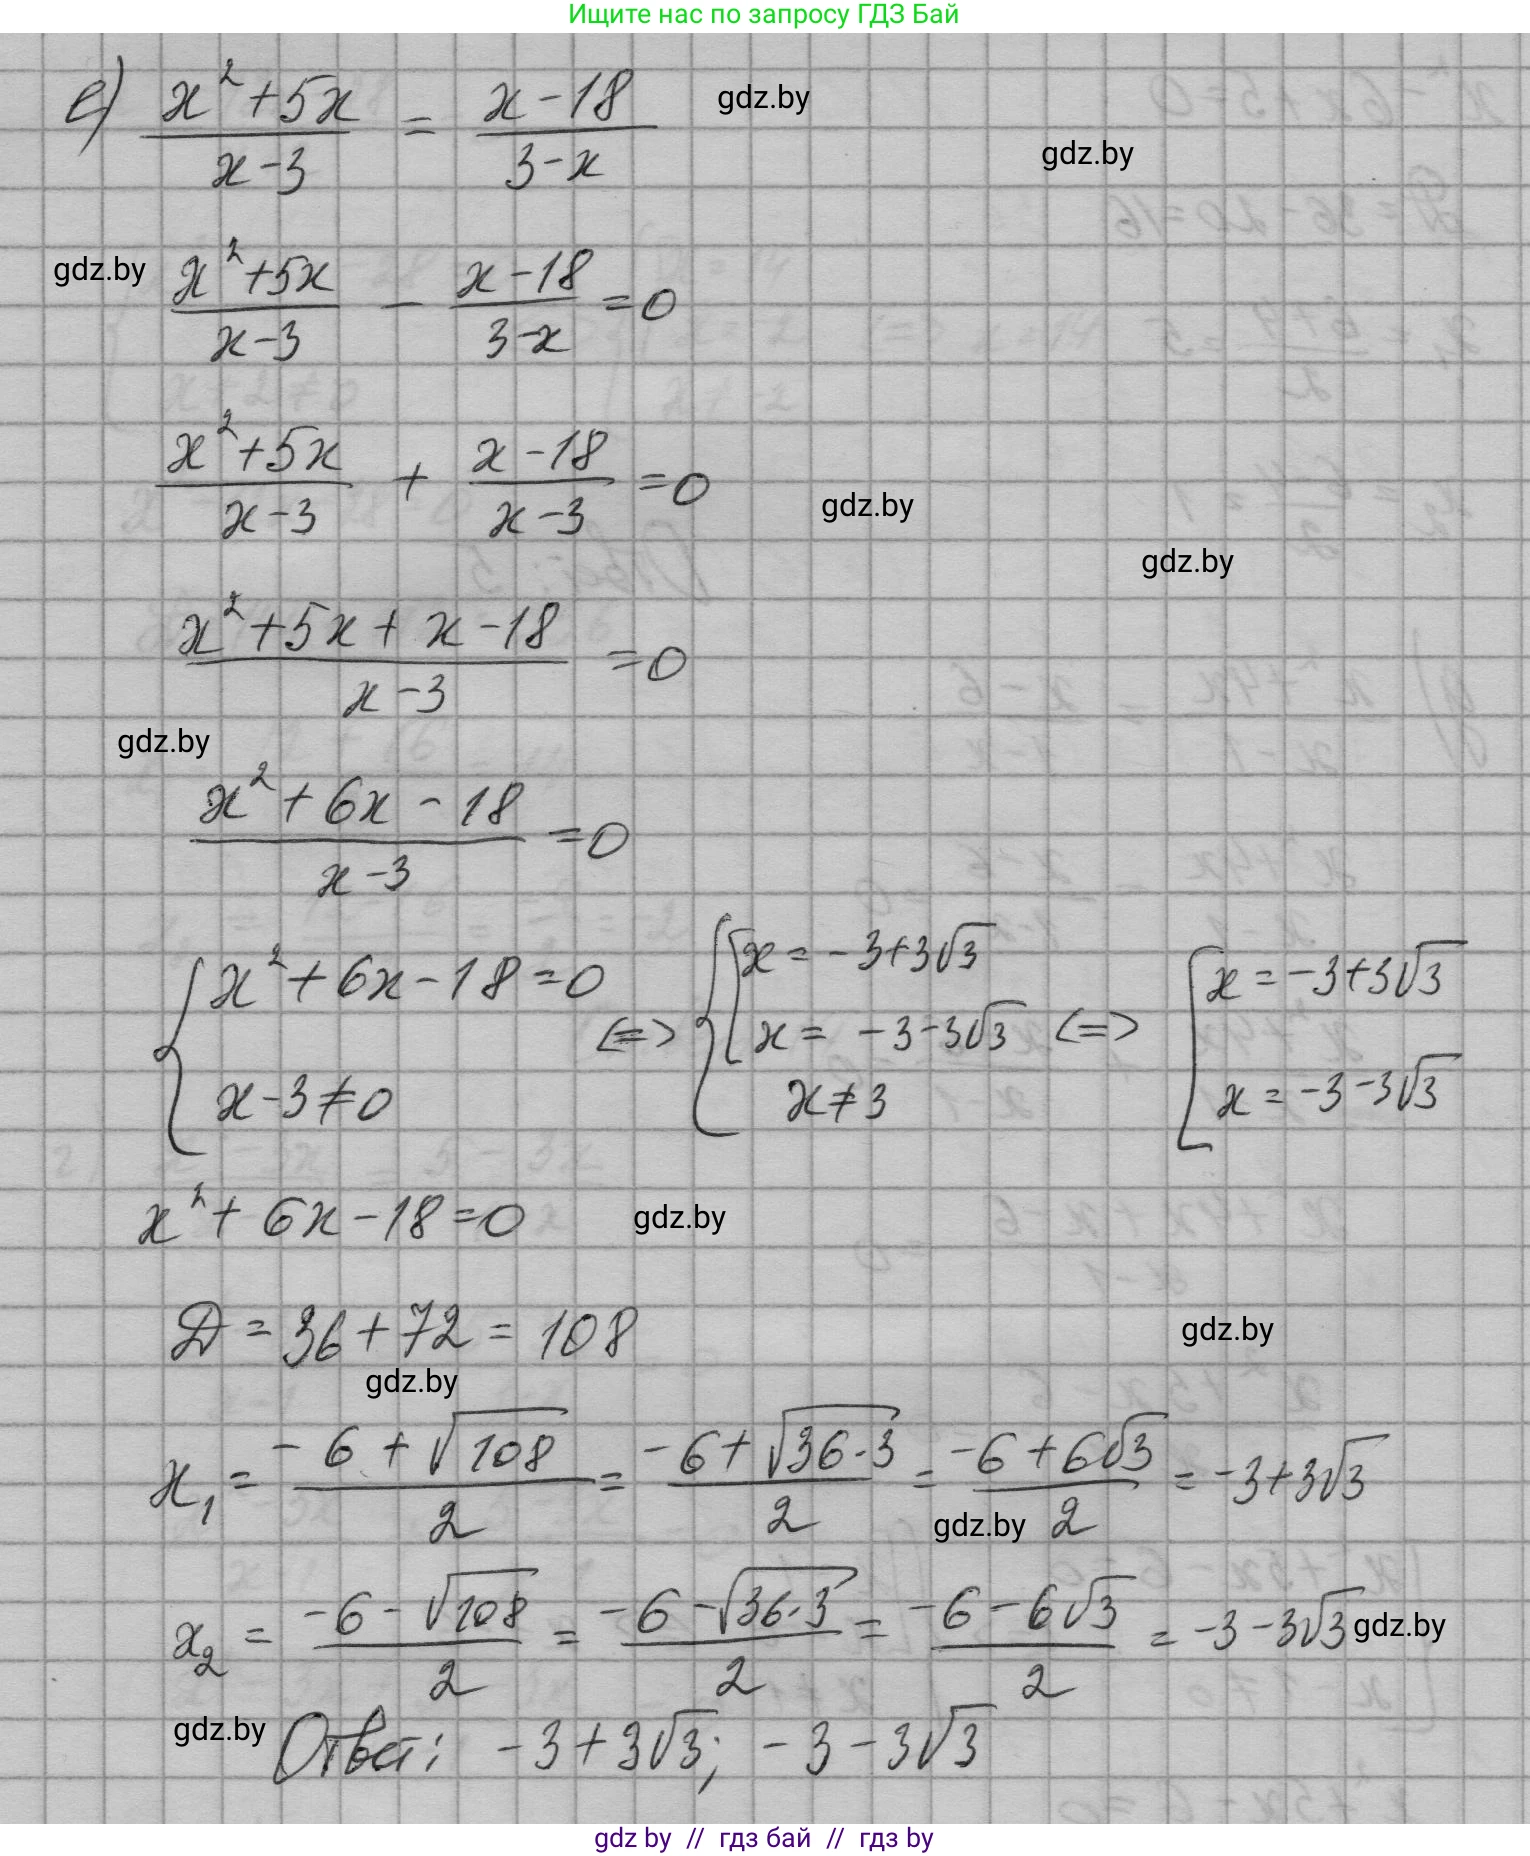 Ищите нас по запросу ГДЗ Бай
е) (x²+5x)/(x-3) = (x-18)/(3-x)
gdz.by
gdz.by
gdz.by
(x²+5x)/(x-3) - (x-18)/(3-x) = 0
(x²+5x)/(x-3) + (x-18)/(x-3) = 0
gdz.by
gdz.by
(x²+5x+x-18)/(x-3) = 0
gdz.by
(x²+6x-18)/(x-3) = 0
{ x²+6x-18=0 x-3≠0 <=> { [ x=-3+3√3 x=-3-3√3 x≠3 <=> [ x=-3+3√3 x=-3-3√3
x²+6x-18=0
gdz.by
D=36+72=108
gdz.by
gdz.by
x₁ = (-6+√108)/2 = (-6+√36·3)/2 = (-6+6√3)/2 = -3+3√3
gdz.by
x₂ = (-6-√108)/2 = (-6-√36·3)/2 = (-6-6√3)/2 = -3-3√3
gdz.by
gdz.by
Ответ: -3+3√3; -3-3√3
gdz by // гдз бай // гдз by